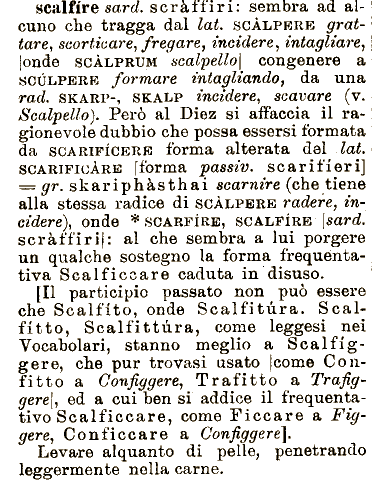 scalfíre sard. scràffiri: sembra ad al-
cuno che tragga dal lat. SCÀLPERE grat-
tare, scorticare, fregare, incidere, intagliare,
[onde SCÀLPRUM scalpello] congenere a
SCÚLPERE formare intagliando, da una
rad. SKARP-, SKALP incidere, scavare (v.
Scalpello). Però al Diez si affaccia il ra-
gionevole dubbio che possa essersi formata
da SCARIFÍCERE forma alterata del lat.
SCARIFICÀRE [forma passiv. scarifíeri]
= gr. skariphàsthai scarnire (che tiene
alla stessa radice di SCÀLPERE radere, in-
cidere), onde * SCARFÍRE, SCALFÍRE [sard.
scràffiri]: al che sembra a lui porgere
un qualche sostegno la forma frequenta-
tiva Scalficcare caduta in disuso.
[Il participio passato non può essere
che Scalfíto, onde Scalfitúra. Scal-
fítto, Scalfittúra, come leggesi nei
Vocabolari, stanno meglio a Scalfíg-
gere, che pur trovasi usato [come Con-
fitto a Configgere, Trafitto a Trafig-
gere], ed a cui ben si addice il frequenta-
tivo Scalficcare, come Ficcare a Fig-
gere, Conficcare a Configgere].
Levare alquanto di pelle, penetrando
leggermente nella carne.